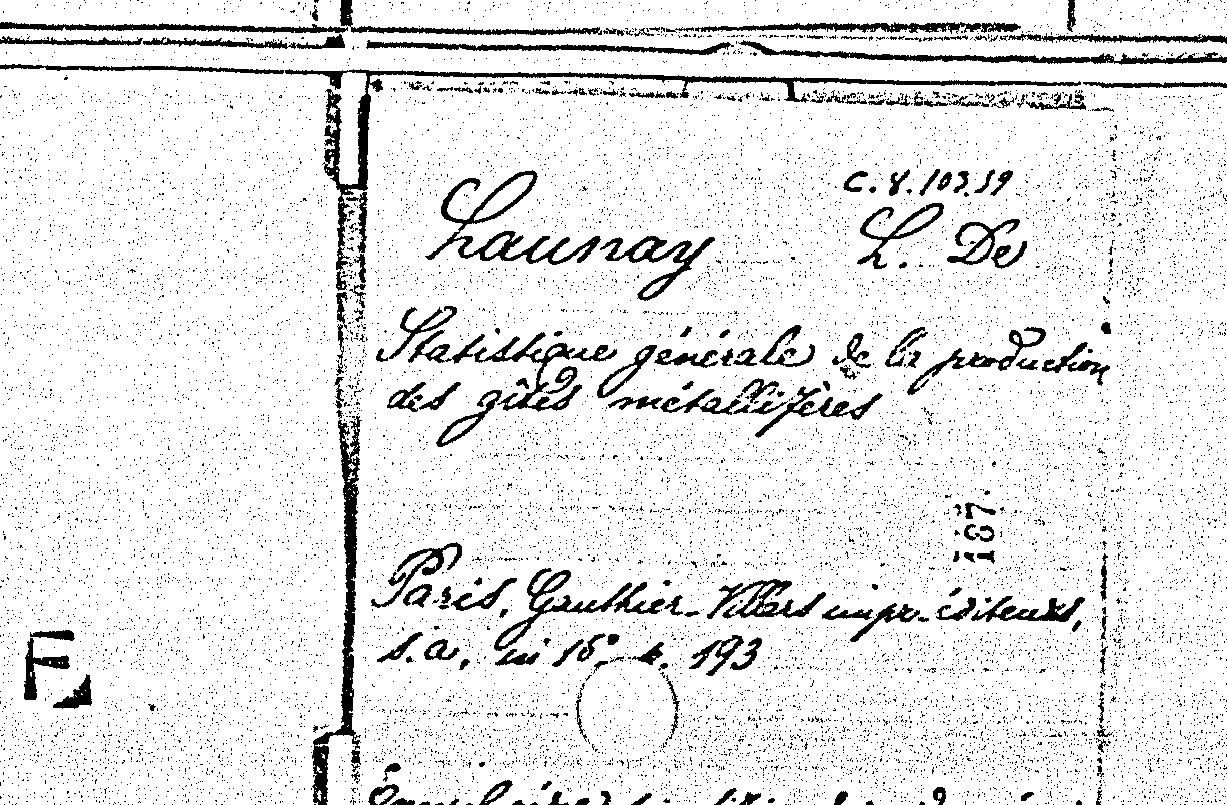 C. 8. 103.59
Launay L. De
Statistique générale de la production
des gîtes métallifères
187.
Paris, Gauthier-Villars impr.-éditeurs,
s.a., in 16°. p. 193
F